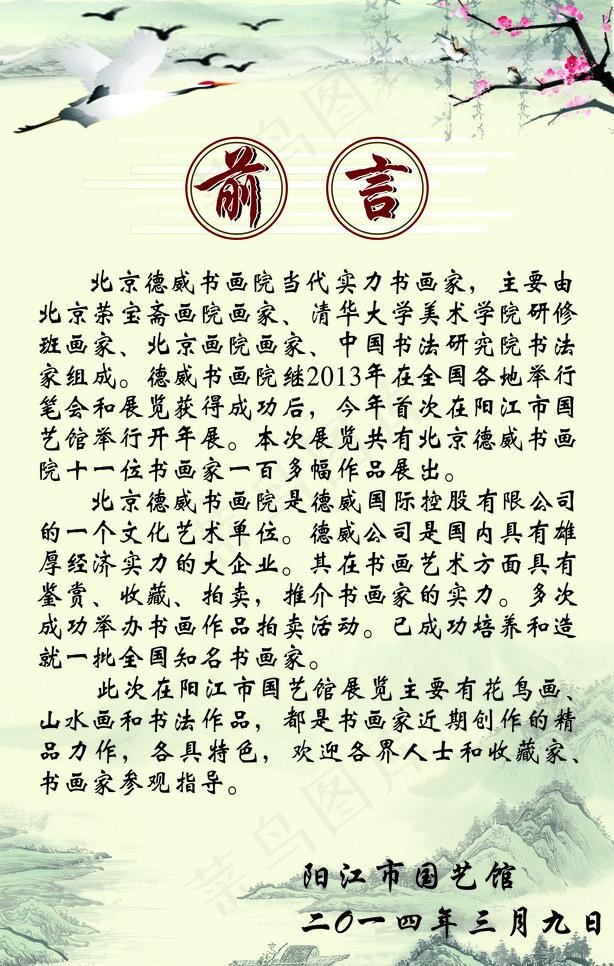 前言
北京德威书画院当代实力书画家，主要由
北京荣宝斋画院画家、清华大学美术学院研修
班画家、北京画院画家、中国书法研究院书法
家组成。德威书画院继2013年在全国各地举行
笔会和展览获得成功后，今年首次在阳江市国
艺馆举行开年展。本次展览共有北京德威书画
院十一位书画家一百多幅作品展出。
北京德威书画院是德威国际控股有限公司
的一个文化艺术单位。德威公司是国内具有雄
厚经济实力的大企业。其在书画艺术方面具有
鉴赏、收藏、拍卖，推介书画家的实力。多次
成功举办书画作品拍卖活动。已成功培养和造
就一批全国知名书画家。
此次在阳江市国艺馆展览主要有花鸟画、
山水画和书法作品，都是书画家近期创作的精
品力作，各具特色，欢迎各界人士和收藏家、
书画家参观指导。
阳江市国艺馆
二0一四年三月九日